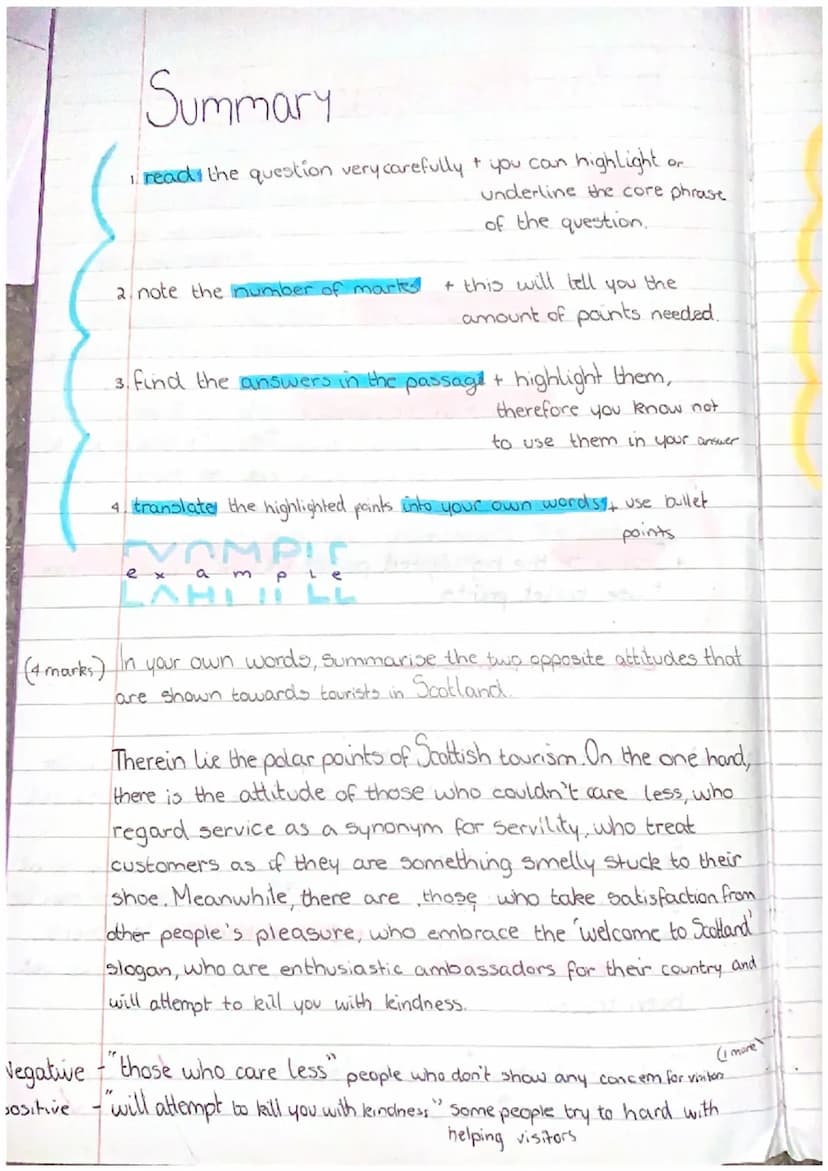 Summary
1. read the question very carefully + you can highlight or
underline the core phrase
of the question.
2. note the number of marks + this will tell you the
amount of points needed.
3. find the answers in the passage + highlight them,
therefore you know not
to use them in your answer
4. translate the highlighted points into your own words, + use bullet
points
example
(4 marks) In your own words, summarise the two opposite attitudes that
are shown towards tourists in Scotland.
Therein lie the polar points of Scottish tourism. On the one hand,
there is the attitude of those who couldn't care less, who
regard service as a synonym for servility, who treat
customers as if they are something smelly stuck to their
shoe. Meanwhile, there are, those who take satisfaction from
other people's pleasure, who embrace the 'welcome to Scotland'
slogan, who are enthusiastic ambassadors for their country and
will attempt to kill you with kindness.
(1 more)
Negative - "those who care less" people who don't show any concern for visitors
positive - "will attempt to kill you with kindness" some people try to hard with
helping visitors